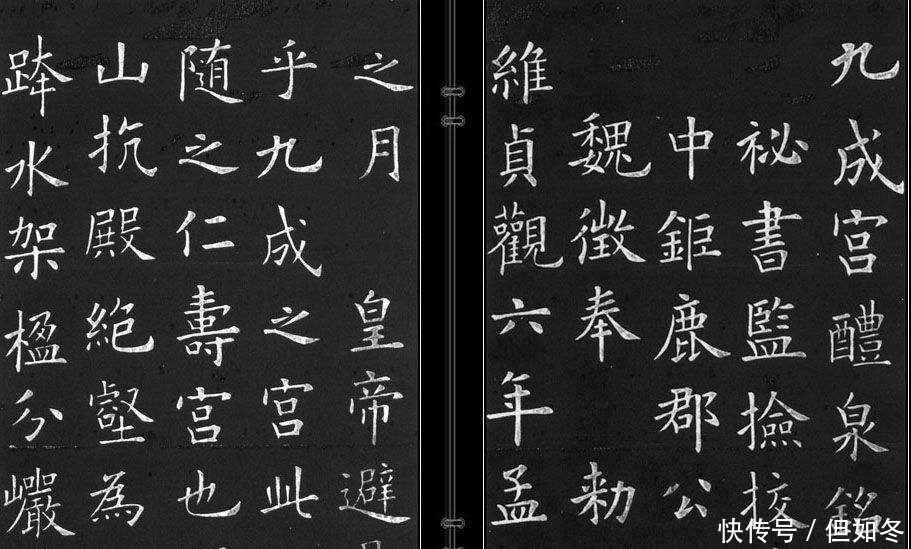 九成宫醴泉銘
祕書監撿挍
中鉅鹿郡公
魏徵奉 勑
維貞觀六年孟
之月 皇帝避
乎九成之宫此
随之仁壽宫也
山抗殿絶壑為
跨水架楹分巖
快传号 / 但如冬